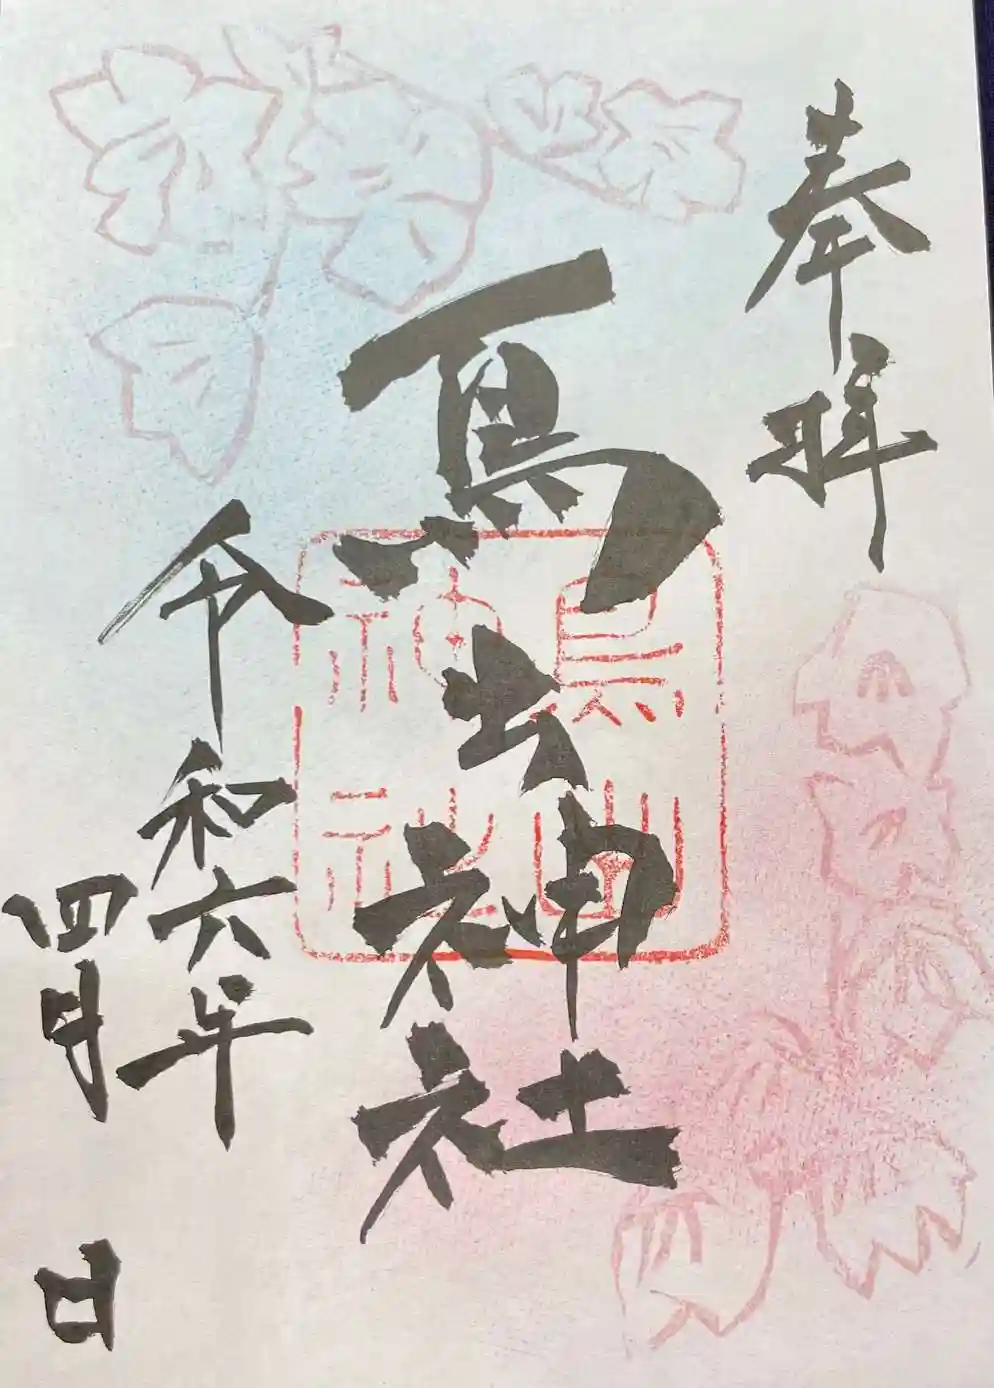 奉拝
鳥出神社
鳥出
神社
令和六年
四月 日